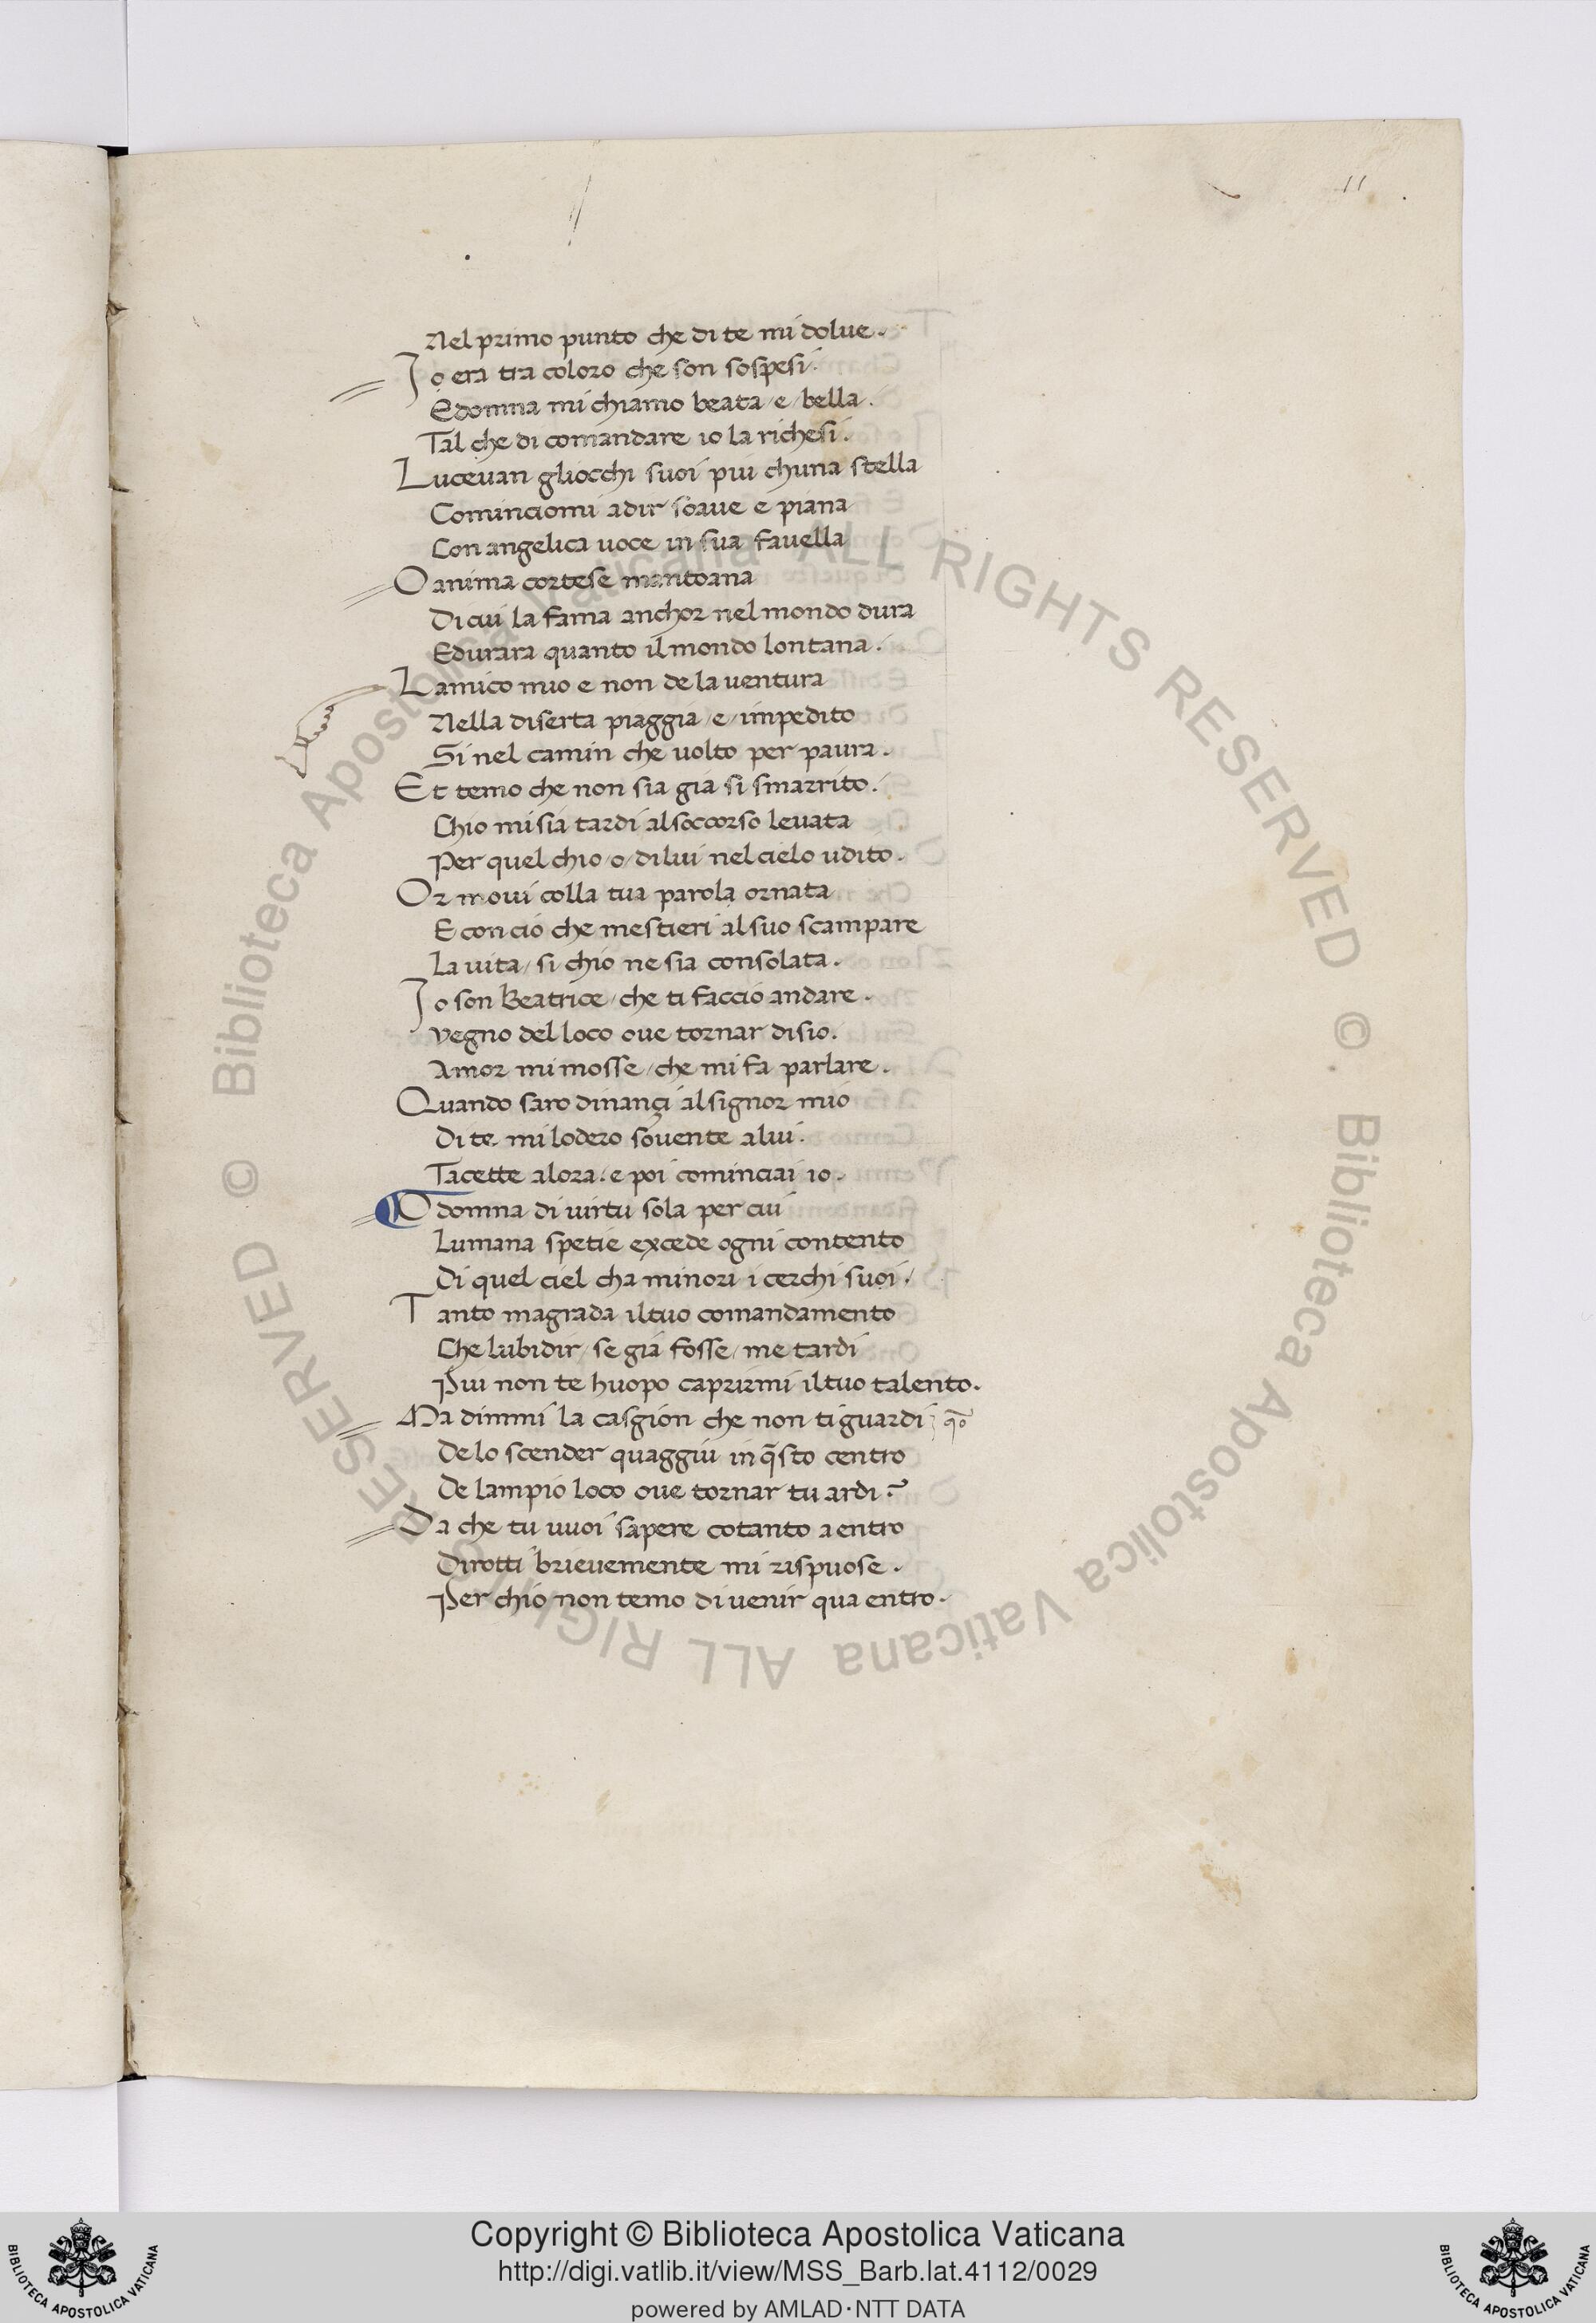 11
Nel primo punto che di te mi dolue.
Io era tra coloro che son sospesi.
E domna mi chiamo beata / e / bella.
Tal che di comandare io la richesi.
Luceuan gliocchi suoi piu chuna stella
Cominciomi adir soaue e piana
Con angelica uoce in sua fauella
O anima cortese mantoana
Di cui la fama anchor nel mondo dura
Edurara quanto il mondo lontana.
Lamico mio e non de la uentura
Nella diserta piaggia / e / impedito
Si nel camin che uolto per paura.
Et temo che non sia gia si smarrito.
Chio mi sia tardi al soccorso leuata
Per quel chio / o / di lui nel cielo udito.
Or moui colla tua parola ornata
E con cio che mestieri al suo scampare
La uita / si chio ne sia consolata.
Io son Beatrice / che ti faccio andare.
Vegno del loco oue tornar disio.
Amor mi mosse / che mi fa parlare.
Quando saro dinançi al signor mio
Di te mi lodero souente a lui.
Tacette alora. e poi cominciai io.
O domna di uirtu sola per cui
Lumana spetie excede ogni contento
Di quel ciel cha minori i cerchi suoi /
Tanto magrada il tuo comandamento
Che lubidir / se gia fosse / me tardi
Piu non te huopo caprirmi il tuo talento.
Ma dimmi la casgion che non ti guardi
De lo scender quaggiu in q̃sto centro
De lampio loco oue tornar tu ardi?
Da che tu uuoi sapere cotanto a entro
Dirotti brieuemente mi rispuose.
Per chio non temo di uenir qua entro.
© Biblioteca Apostolica Vaticana ALL RIGHTS RESERVED
© Biblioteca Apostolica Vaticana ALL RIGHTS RESERVED
Copyright © Biblioteca Apostolica Vaticana
http://digi.vatlib.it/view/MSS_Barb.lat.4112/0029
powered by AMLAD·NTT DATA
BIBLIOTECA APOSTOLICA VATICANA
BIBLIOTECA APOSTOLICA VATICANA